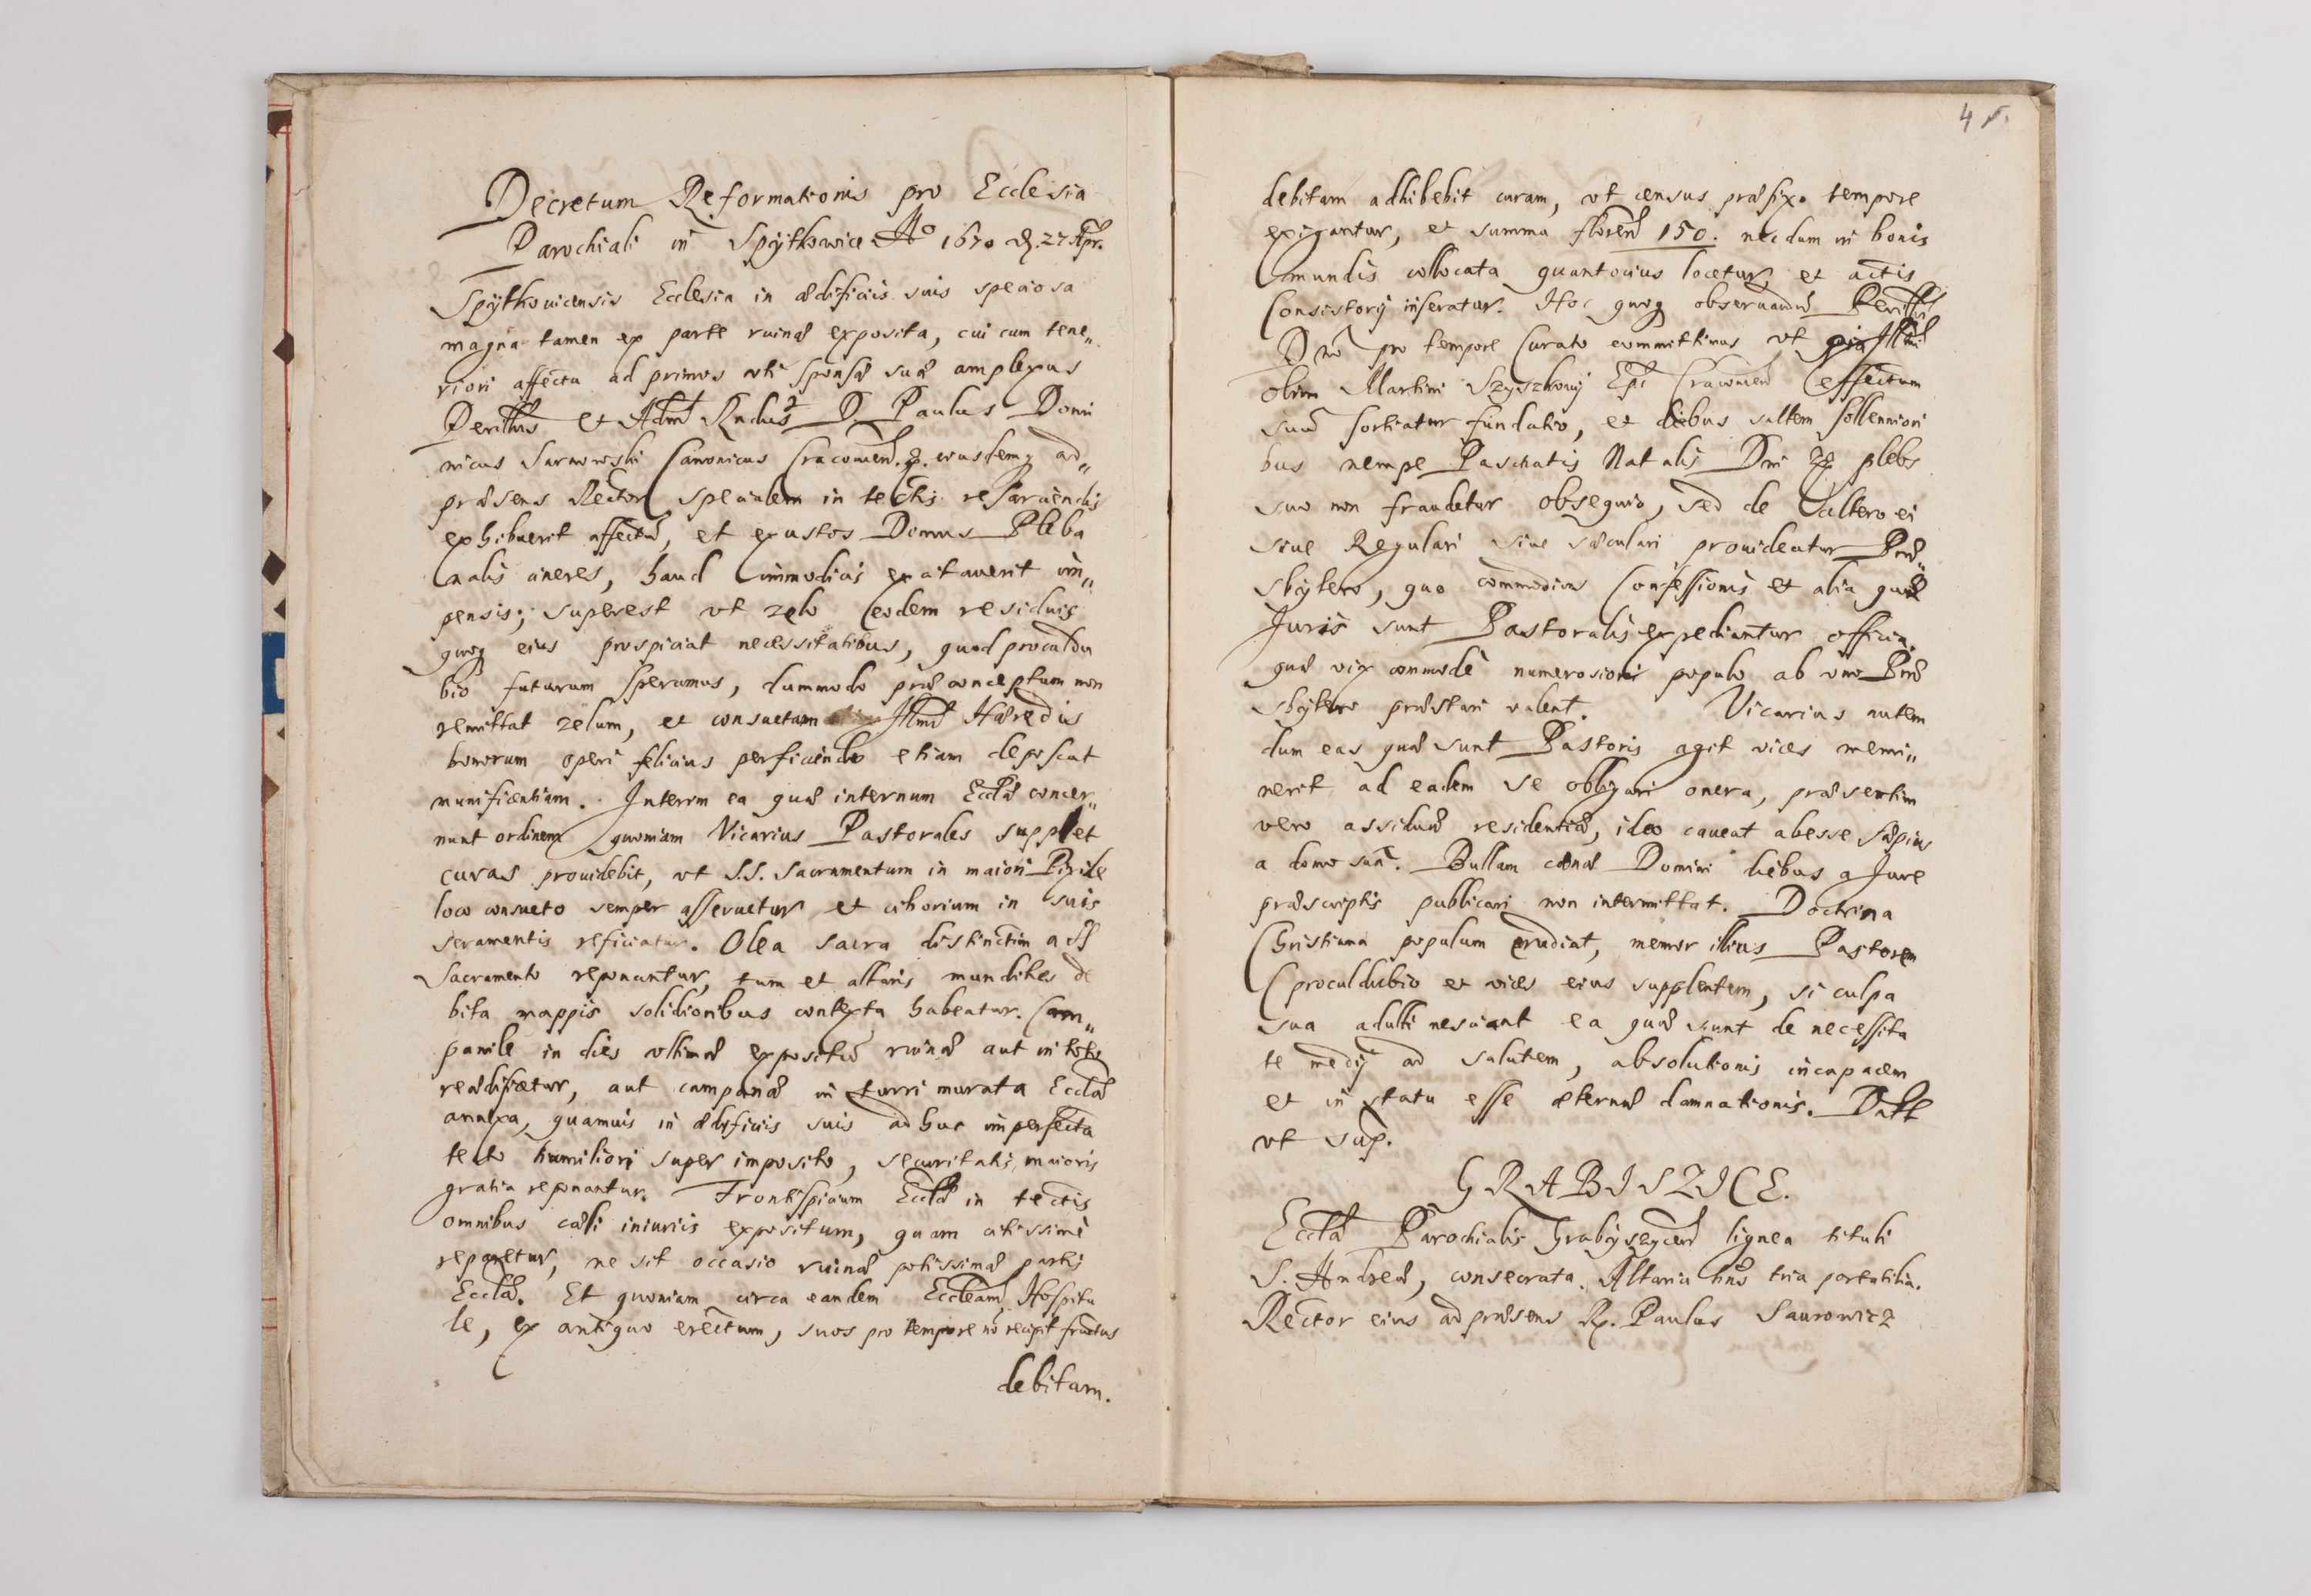 Decretum Reformationis pro Ecclesia
Parochiali in Spytkowice Ao 1670 d. 27 Apr.
Spytkouicensis Ecclesia in ædificiis suis speciosa
magna tamen ex parte ruinæ exposita, cui cum tene„
riori affectu ad primos vti sponsæ suæ amplexus
Perillris et Adm Rndus D. Paulus Domi
nicus Sarnowski Canonicus Cracouien. eiusdemq ad„
præsens Rector specialem in tectis resarciendis
exhibuerit affectū, et exustos Domus Pleba
nalis cineres, haud immodicis excitauerit im„
pensis; superest vt zelo eodem residuis
quoq eius prospiciat necessitatibus, quod proculdu
bio futurum speramus, dummodo præconceptum non
remittat zelum, et consuetam Illmi Hæredis
bonorum operi felicius perficiendo etiam deposcat
munificentiam. Interim ea quæ internum Ecclæ concer„
nunt ordinem quoniam Vicarius Pastorales supplet
curas prouidebit, vt S.S. Sacramentum in maiori Pixide
loco consueto semper asseruetur et ciborium in suis
seramentis reficiatur. Olea sacra distinctim a SS
Sacramento reponantur, tum et altaris mundities de
bita mappis solidioribus contexta habeatur. Cam„
panile in dies vltimæ expositū ruinæ aut in toto
reædificetur, aut campanæ in turri murata Ecclæ
annexa, quamuis in ædificiis suis adhuc imperfecta
tecto humiliori super imposito, securitatis maioris
gratia reponantur. Frontispicium Ecclæ in tectis
omnibus cæli iniuriis expositum, quam citissimè
reparetur, ne sit occasio ruinæ potissimæ partis
Ecclæ. Et quoniam circa eandem Eccleam Hospita
le, ex antiquo erectum, suos pro tempore nō recipit fructus
debitam.
4
debitam adhibebit curam, vt census præfixo tempore
exigantur, et summa floren 150. necdum in bonis
mundis collocata quantocius locetur et actis
Consistorij inseratur. Hoc quoq obseruandū Perillri
Dno pro tempore Curato committimus vt pia Illmi
olim Martini Szyszkowij Epi Cracouien effectum
suū sortiatur fundatio, et diebus saltem sollenniori
bus nempe Paschatis Natalis Dni plebs
suo non fraudetur obsequio, sed de altero ei
siue Regulari siue sæculari prouideatur Præ„
sbytero, quo commodius Confessionis et alia quæ
Juris sunt Pastoralis expediantur officia,
quæ vix commodè numerosiori populo ab vno Præ
sbytero præstari valent. Vicarius autem
dum eas quæ sunt Pastoris agit vices memi„
nerit ad eadem se obligari onera, præsertim
vero assiduā residentiā, ideo caueat abesse sæpius
a domo sua. Bullam cænæ Domini diebus a Jure
præscriptis publicari non intermittat. Doctrina
Christiana populum erudiat, memor illius Pastorem
proculdubio et vices eius supplentem, si culpa
sua adulti nesciant ea quæ sunt de necessita
te medij ad salutem, absolutionis incapacem
et in statu esse æternæ damnationis. Datt
vt sup.
GRABISZICE.
Eccla Parochialis Grabyszycen lignea tituli
S. Andreæ, consecrata. Altaria hñs tria portatilia.
Rector eius ad præsens R. Paulus Saurowicz